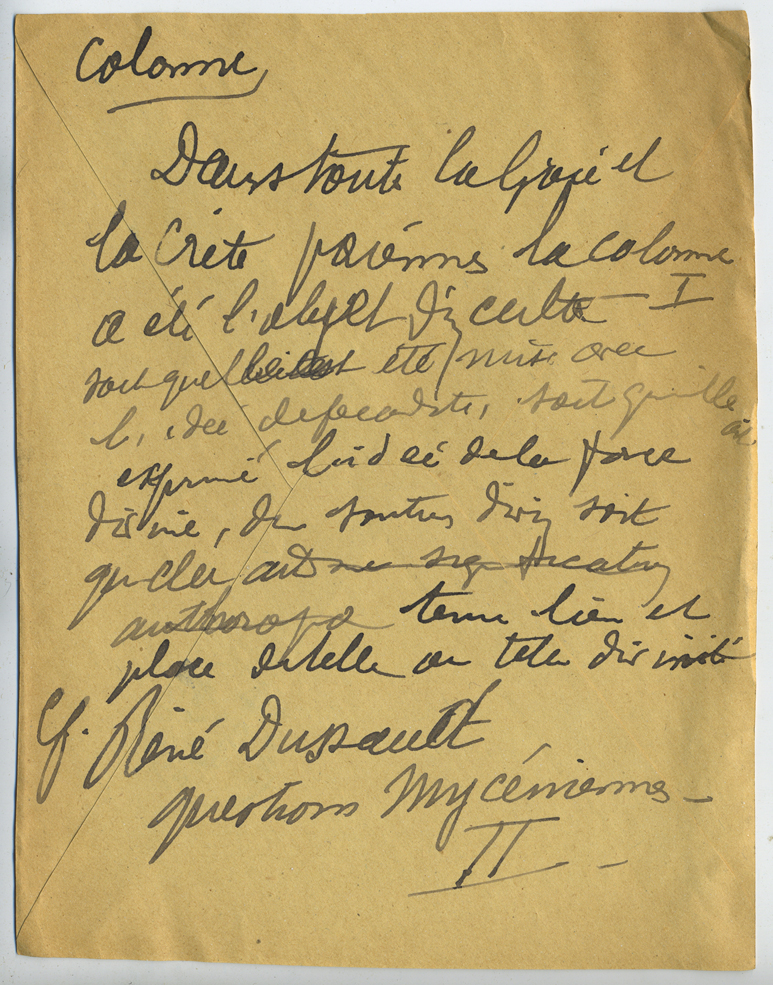 Colonne
Dans toute la Grèce et
la Crète païennes la colonne
a été l'objet d'un culte — I
soit qu'elle ait été mise avec
l'idée de fécondité, soit qu'elle ait
exprimé l'idée de la force
divine, du soutien divin soit
qu'elle ait une signification
anthropo tenu lieu et
place de telle ou telle divinité
Cf. René Dussault
questions Mycéniennes —
II —